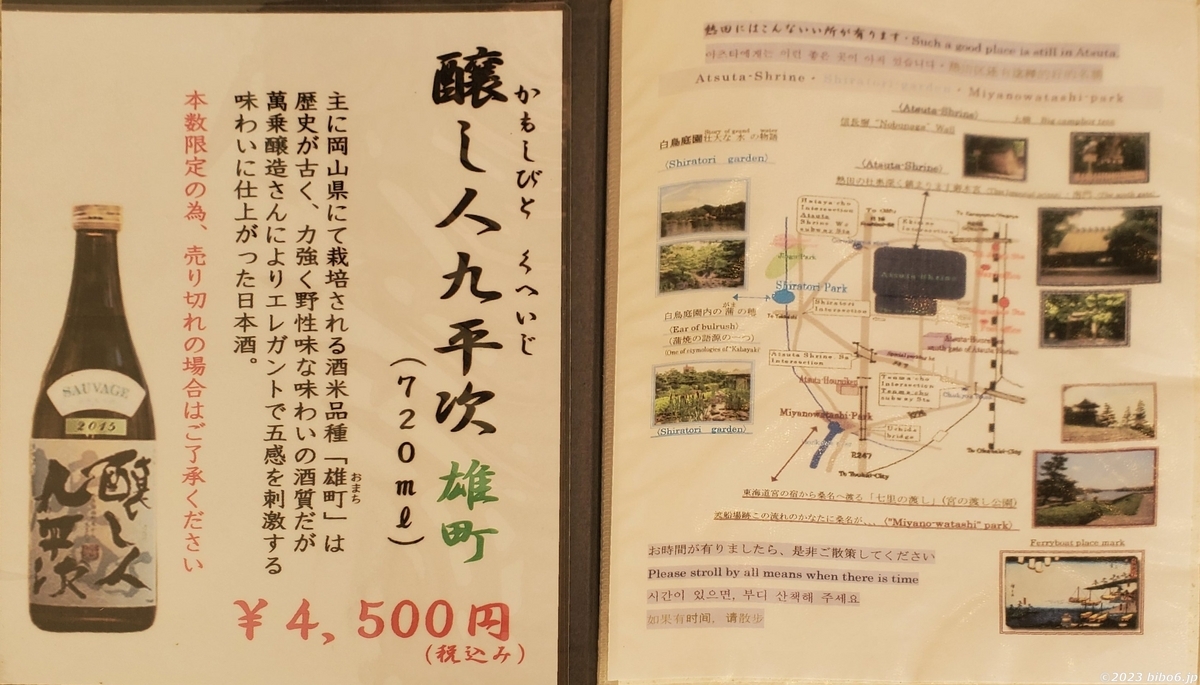 かもしびと くへいじ
醸し人九平次 雄町
(720ml)
主に岡山県にて栽培される酒米品種「雄町」は
おまち
歴史が古く、力強く野性味な味わいの酒質だが
萬乗醸造さんによりエレガントで五感を刺激する
味わいに仕上がった日本酒。
本数限定の為、売り切れの場合はご了承ください
¥4,500円
(税込み)
SAUVAGE
2015
醸し人
九平次
熱田にはこんないい所が有ります・Such a good place is still in Atsuta.
아츠타에게는 이런 좋은 곳이 아직 있습니다・
Atsuta-Shrine・Shiratori-garden・Miyanowatashi-park
(Atsuta-Shrine)
信長塀 "Nobunaga" Wall
大楠 Big camphor tree
白鳥庭園 壮大な水の物語
(Shiratori garden)
(Atsuta-Shrine)
Atsuta-Shrine
Shiratori Park
白鳥庭園内の蒲の穂
がま
(Ear of bulrush)
(蒲焼の語源の一つ)
(One of etymologies of "Kabayaki")
Shiratori
Intersection
Miyanowatashi-Park
Uchida
bridge
R247
(Shiratori garden)
東海道宮の宿から桑名へ渡る「七里の渡し」(宮の渡し公園)
渡船場跡この流れのかなたに桑名が、、、("Miyano-watashi" park)
Ferryboat place mark
お時間が有りましたら、是非ご散策してください
Please stroll by all means when there is time
시간이 있으면, 부디 산책해 주세요
如果有时间，请散步
©2023 bibo6.jp